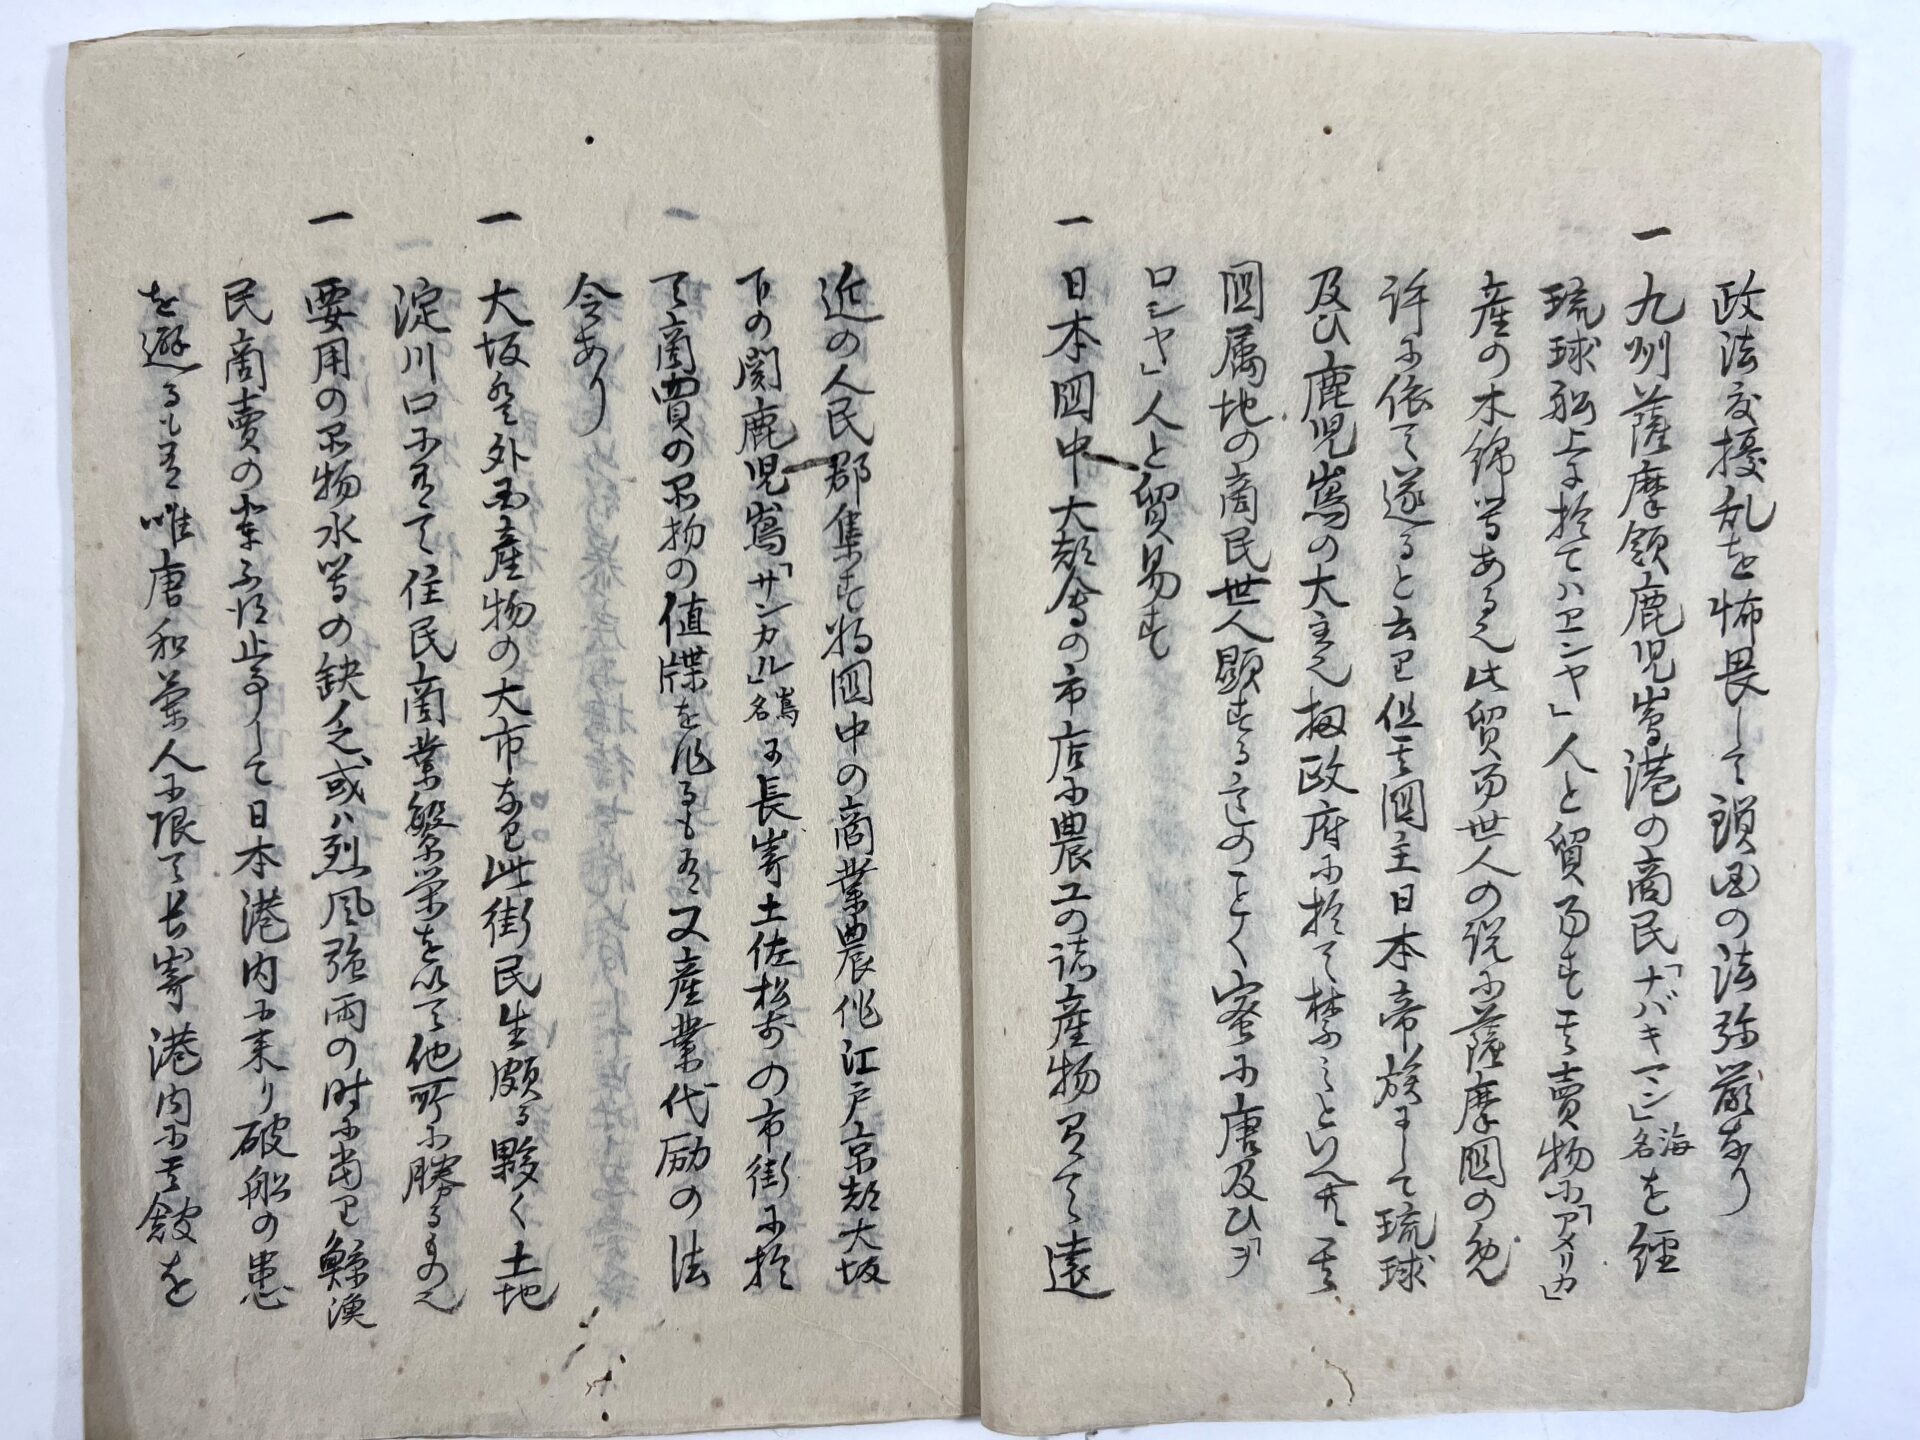 政法交擾乱を怖畏して鎖国の法弥厳なり
一 九州薩摩領鹿児嶌港の商民「ナバキマシ」海名を経
琉球舩上ニ於てハ「ヱシヤ」人と貿易す其賣物ハ「アメリカ」
産の木綿等ある也此貿易世人の説に薩摩國の免
許に依て遂ると云り但其國主日本帝族にして琉球
及ひ鹿児嶌の大主也扨政府に於て禁之といへ共其
國属地の商民世人顕する言のことく密に唐及ひ「ヲ
ロシヤ」人と貿易す
一 日本國中大都會の市店に農工の諸産物有て遠
近の人民郡集す将國中の商業農作江戸京都大坂
下の関鹿児嶌「サンカル」嶌名に長嵜土佐松前の市街に於
て商賣の品物の値牒を作るも有又産業代励の法
令あり
一 大坂は外国産物の大市なり此街民生頗る夥く土地
淀川口に有て住民商業繁栄を以て他所に勝るもの也
一 要用の品物水等の缺乏或ハ烈風強雨の時に當り鯨漁
民商賣の事不得止事して日本港内に来り破船の患
を避るも有唯唐和蘭人に限て長嵜港内に其舘を